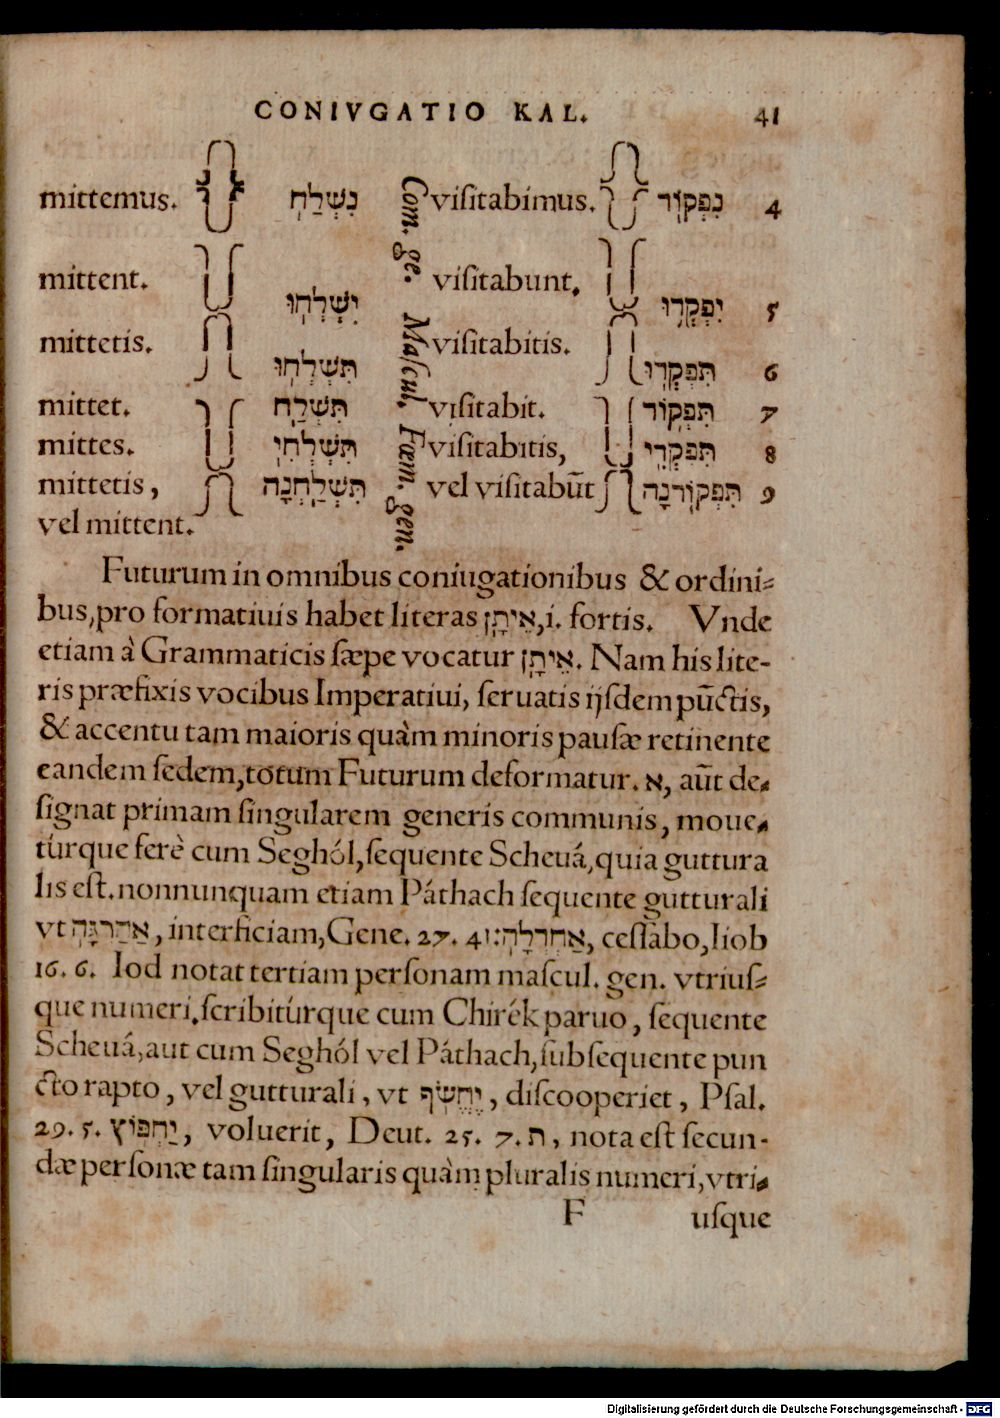 CONIVGATIO KAL. 41
mittemus. נִשְׁלַח Com. ge. viſitabimus. נִפְקוֹד 4
mittent. יִשְׁלְחוּ viſitabunt. יִפְקְדוּ 5
mittetis. תִּשְׁלְחוּ Maſcul. viſitabitis. תִּפְקְדוּ 6
mittet. תִּשְׁלַח viſitabit. תִּפְקוֹד 7
mittes. תִּשְׁלְחִי Fœm. gen. viſitabitis, תִּפְקְדִי 8
mittetis, תִּשְׁלַחְנָה vel viſitabūt תִּפְקוֹדנָה 9
vel mittent.
Futurum in omnibus coniugationibus & ordini⸗
bus,pro formatiuis habet literas אֵיתָן,i. fortis. Vnde
etiam à Grammaticis ſæpe vocatur אֵיתָן. Nam his lite-
ris præfixis vocibus Imperatiui, ſeruatis ijſdem pūctis,
& accentu tam maioris quàm minoris pauſæ retinente
eandem ſedem,totum Futurum deformatur. א, aūt de⸗
ſignat primam ſingularem generis communis, moue⸗
túrque ferè cum Seghól,ſequente Scheuá,quia guttura
lis eſt. nonnunquam etiam Páthach ſequente gutturali
vt אַהַרְגָה, interficiam,Gene. 27. 41: אַחְדְלָה, ceſſabo,Iiob
16. 6. Iod notat tertiam perſonam maſcul. gen. vtriuſ⸗
que numeri,ſcribitúrque cum Chirék paruo, ſequente
Scheuá,aut cum Seghól vel Páthach,ſubſequente pun
cto rapto, vel gutturali, vt יֶחֱשֹׂף, diſcooperiet, Pſal.
29. 5. יַחְפּוֹץ, voluerit, Deut. 25. 7. ת, nota eſt ſecun-
dæ perſonæ tam ſingularis quàm pluralis numeri,vtri⸗
F uſque
Digitalisierung gefördert durch die Deutsche Forschungsgemeinschaft - DFG